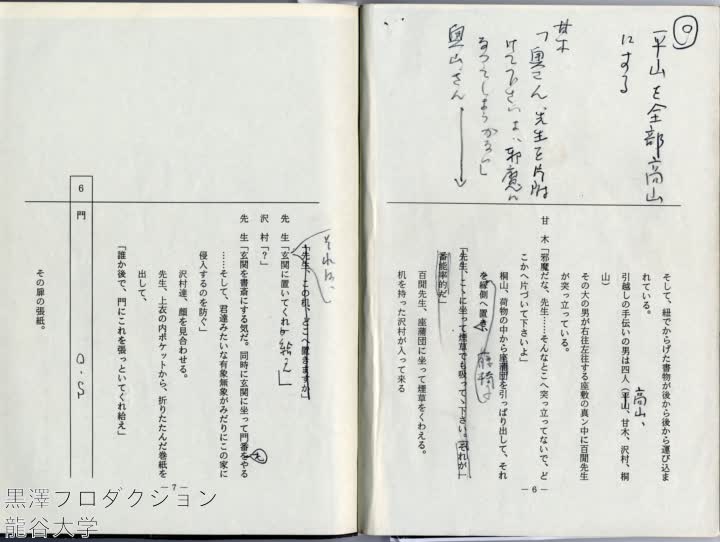 ⑨
平山を全部高山
にする
甘木
「奥さん、先生を片附
けて下さいよ、邪魔に
なってしようがない」
奥山さん
そして、紐でからげた書物が後から後から運び込ま
れている。
引越しの手伝いの男は四人（平山、甘木、沢村、桐
山）
高山、
その大の男が右往左往する座敷の真ン中に百閒先生
が突っ立っている。
甘木「邪魔だな、先生……そんなとこへ突っ立ってないで、ど
こかへ片づいて下さいよ」
桐山、荷物の中から座蒲団を引っぱり出して、それ
を縁側へ置き、
「先生、こゝに坐って煙草でも吸ってゝ下さい。それが一
番能率的だ」
百閒先生、座蒲団に坐って煙草をくわえる。
机を持った沢村が入って来る
―6―
それは、
「先生、この机、どこへ置きますか」
先生「玄関に置いてくれ給え」
沢村「？」
先生「玄関を書斎にする気だ。同時に玄関に坐って門番をやる
……そして、君達みたいな有象無象がみだりにこの家に
侵入するのを防ぐ」
沢村達、顔を見合わせる。
先生、上衣の内ポケットから、折りたたんだ巻紙を
出して、
「誰か後で、門にこれを張っといてくれ給え」
6 門
O.S
その扉の張紙。
―7―
黒澤プロダクション
龍谷大学